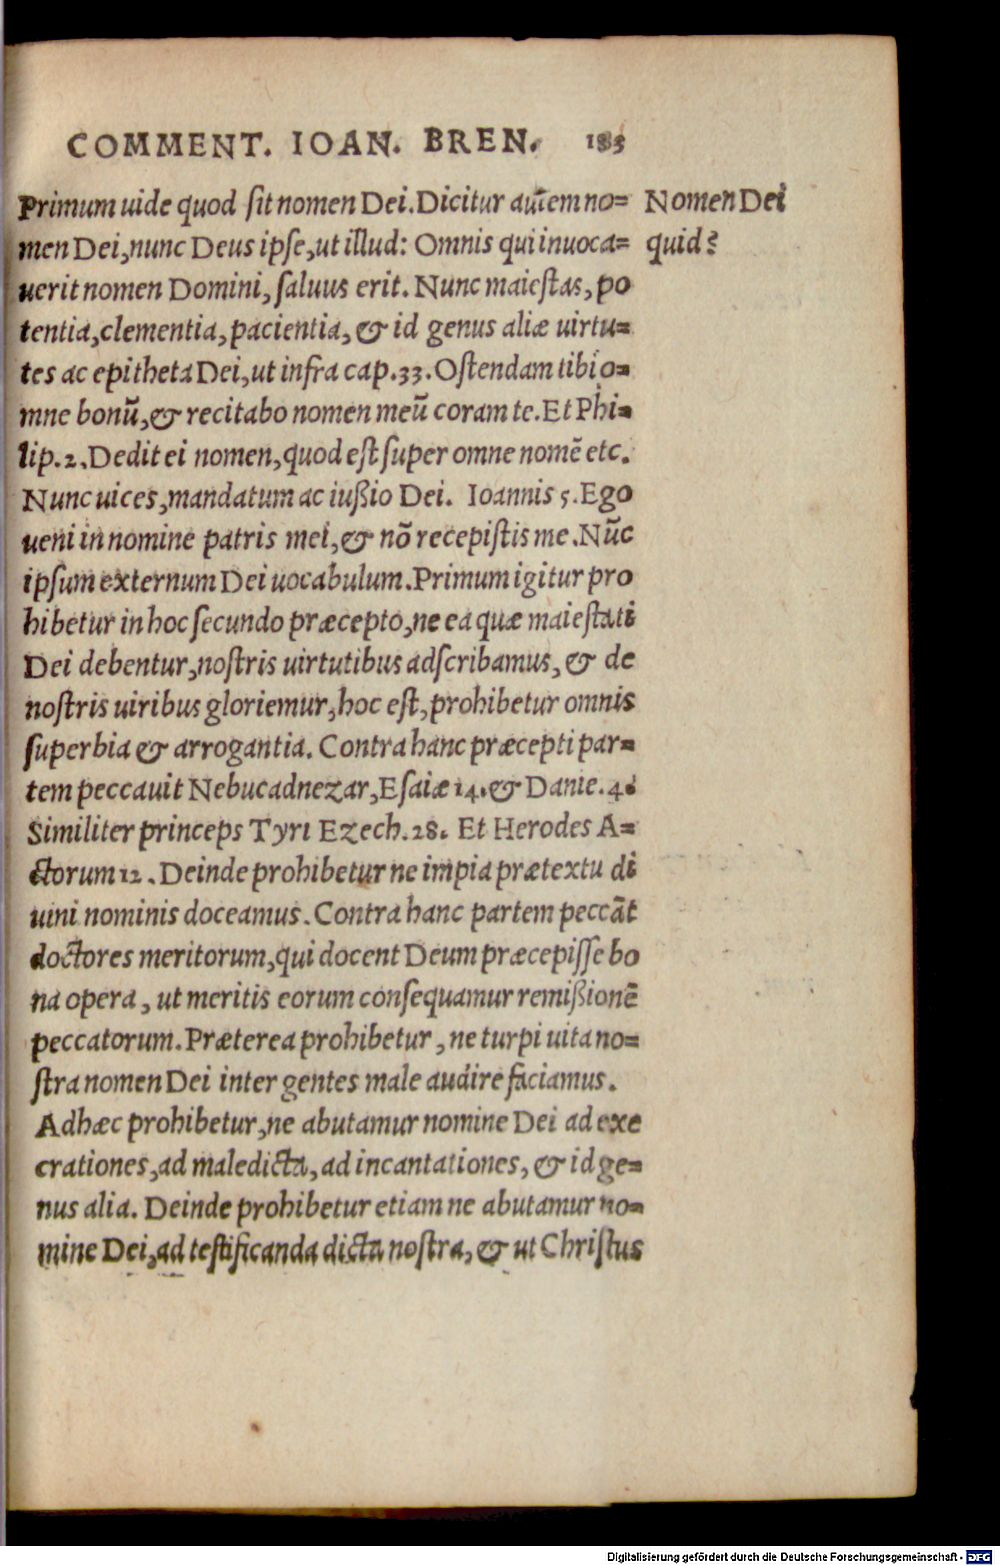 COMMENT. IOAN. BREN. 185
Primum uide quod ſit nomen Dei. Dicitur aut̃em no=
Nomen Dei
men Dei, nunc Deus ipſe, ut illud: Omnis qui inuoca=
quid?
uerit nomen Domini, ſaluus erit. Nunc maieſtas, po
tentia, clementia, pacientia, & id genus aliæ uirtu=
tes ac epitheta Dei, ut infra cap. 33. Oſtendam tibi o=
mne bonū, & recitabo nomen meū coram te. Et Phi=
lip. 2. Dedit ei nomen, quod eſt ſuper omne nomē etc.
Nunc uices, mandatum ac iußio Dei. Ioannis 5. Ego
ueni in nomine patris mei, & nō recepiſtis me. Nūc
ipſum externum Dei uocabulum. Primum igitur pro
hibetur in hoc ſecundo præcepto, ne ea quæ maieſtati
Dei debentur, noſtris uirtutibus adſcribamus, & de
noſtris uiribus gloriemur, hoc eſt, prohibetur omnis
ſuperbia & arrogantia. Contra hanc præcepti par=
tem peccauit Nebucadnezar, Eſaiæ 14. & Danie. 4.
Similiter princeps Tyri Ezech. 28. Et Herodes A=
ctorum 12. Deinde prohibetur ne impia prætextu di
uini nominis doceamus. Contra hanc partem peccāt
doctores meritorum, qui docent Deum præcepiſſe bo
na opera, ut meritis eorum conſequamur remißionē
peccatorum. Præterea prohibetur, ne turpi uita no=
ſtra nomen Dei inter gentes male audire faciamus.
Adhæc prohibetur, ne abutamur nomine Dei ad exe
crationes, ad maledicta, ad incantationes, & id ge=
nus alia. Deinde prohibetur etiam ne abutamur no=
mine Dei, ad teſtificanda dicta noſtra, & ut Chriſtus
Digitalisierung gefördert durch die Deutsche Forschungsgemeinschaft - DFG